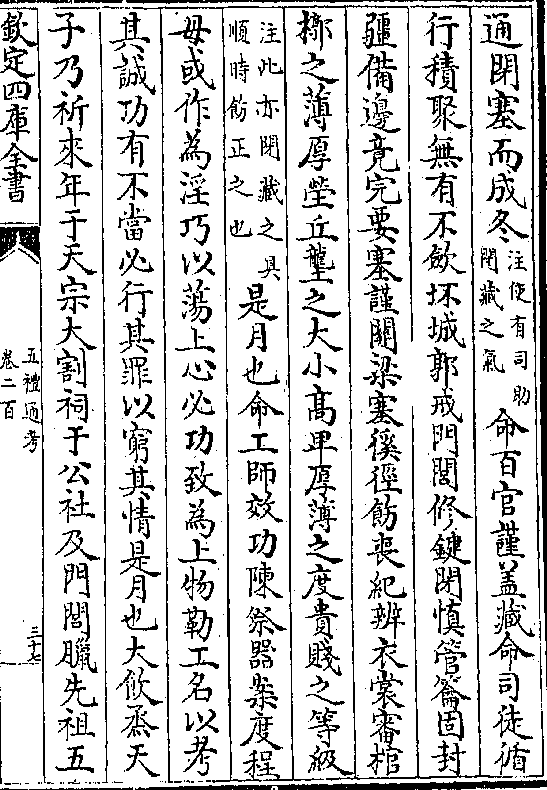 通閉塞而成冬注使有司助閉藏之氣命百官謹蓋藏命司徒循
行積聚無有不歛坏城郭戒門閭修鍵閉慎管籥固封
疆備邊竟完要塞謹關梁塞徯徑飭喪紀辨衣裳審棺
槨之薄厚塋丘壟之大小高卑厚薄之度貴賤之等級
注此亦閉藏之具順時飭正之也是月也命工師效功陳祭器案度程
毋或作為淫巧以蕩上心必功致為上物勒工名以考
其誠功有不當必行其罪以窮其情是月也大飲烝天
子乃祈來年于天宗大割祠于公社及門閭臘先祖五
欽定四庫全書
五禮通考
卷二百
三十七